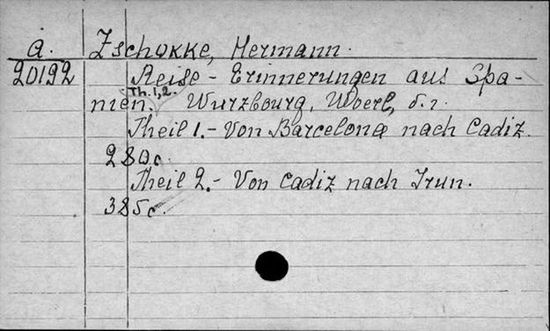 a. Zschokke, Hermann.
20192 Reise-Erinnerungen aus Spa-
Th. 1, 2.
nien. Wurzbourg, Woerl, s. a.
Theil 1.- Von Barcelona nach Cadiz.
280 c.
Theil 2.- Von Cadiz nach Irun.
385 c.